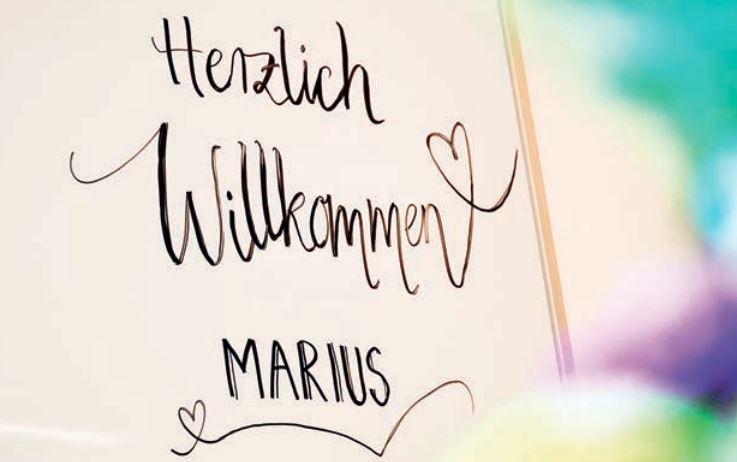 Herzlich
Willkommen
MARIUS